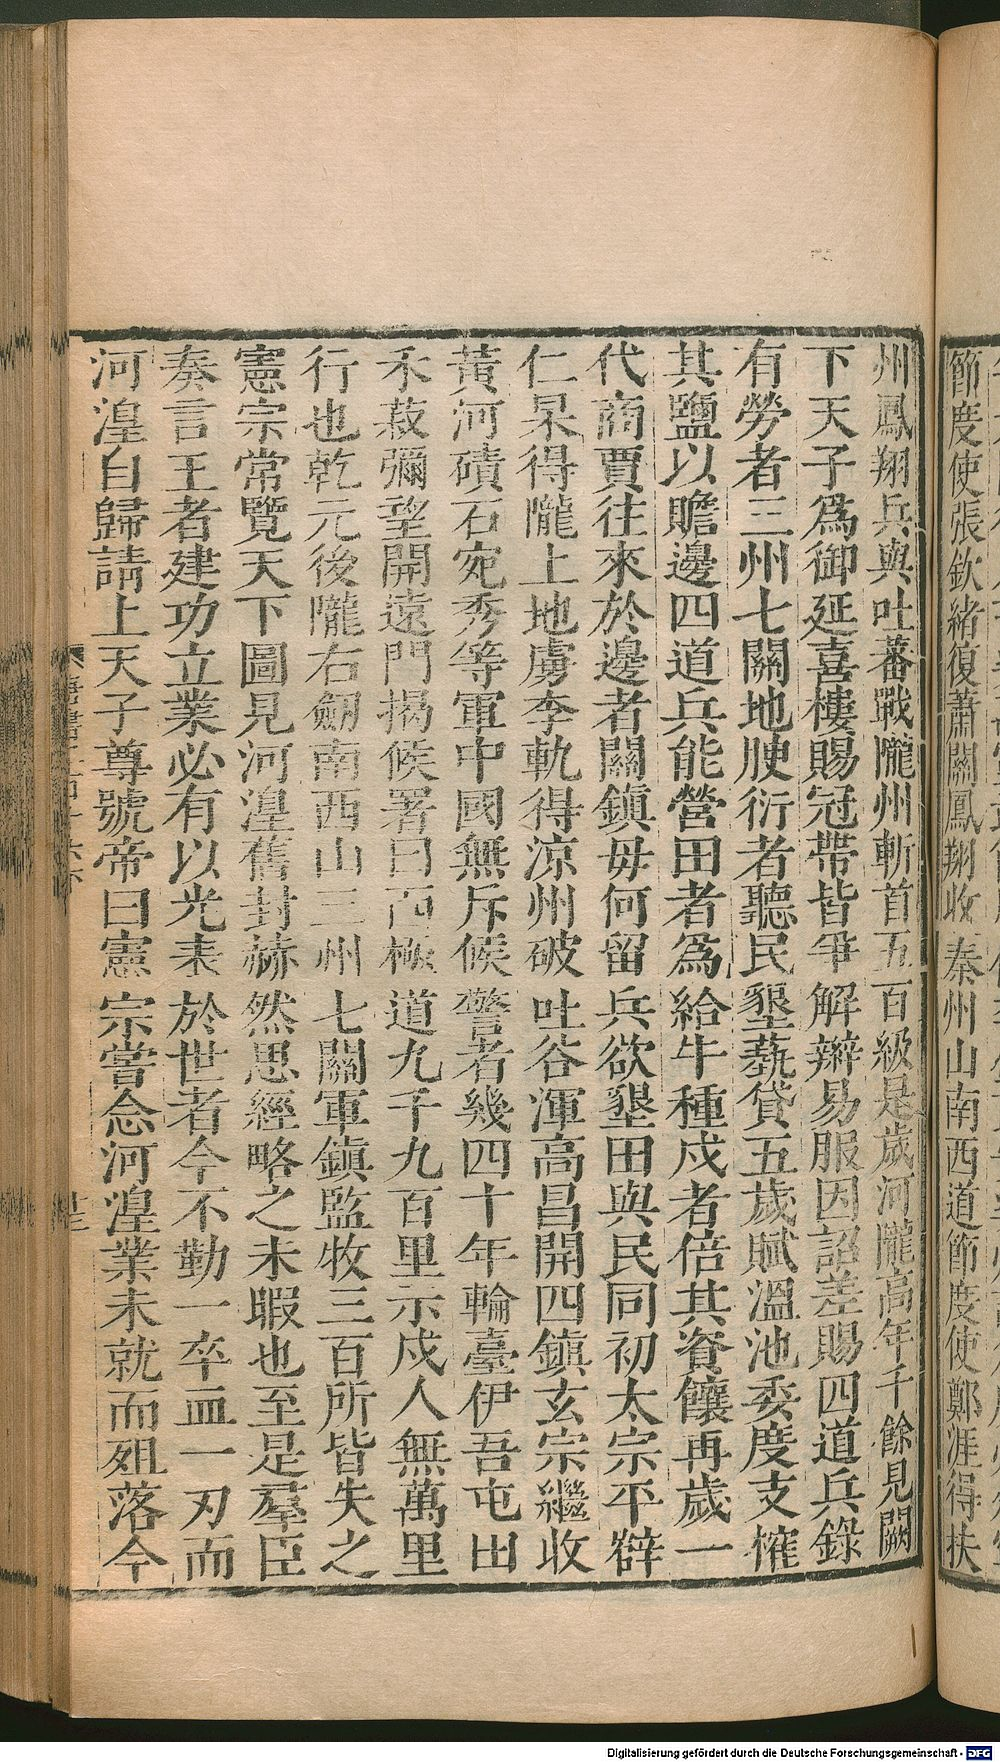 節度使張欽緒復蕭關鳳翔收秦州山南西道節度使鄭涯得扶
州鳳翔兵與吐蕃戰隴州斬首五百級是歲河隴高年千餘見闕
下天子爲御延喜樓賜冠帶皆爭解辮易服因詔差賜四道兵錄
有勞者三州七關地腴衍者聽民墾藝貸五歲賦溫池委度支榷
其鹽以贍邊四道兵能營田者爲給牛種戍者倍其資饟再歲一
代商賈往來於邊者關鎮毋何留兵欲墾田與民同初太宗平薛
仁杲得隴上地虜李軌得涼州破吐谷渾高昌開四鎮玄宗繼收
黃河磧石宛秀等軍中國無斥候警者幾四十年輪臺伊吾屯田
禾菽彌望開遠門揭候署曰西極道九千九百里示戍人無萬里
行也乾元後隴右劒南西山三州七關軍鎮監牧三百所皆失之
憲宗常覽天下圖見河湟舊封赫然思經略之未暇也至是羣臣
奏言王者建功立業必有以光表於世者今不勤一卒血一刃而
河湟自歸請上天子尊號帝曰憲宗嘗念河湟業未就而殂落今
Digitalisierung gefördert durch die Deutsche Forschungsgemeinschaft - DFG